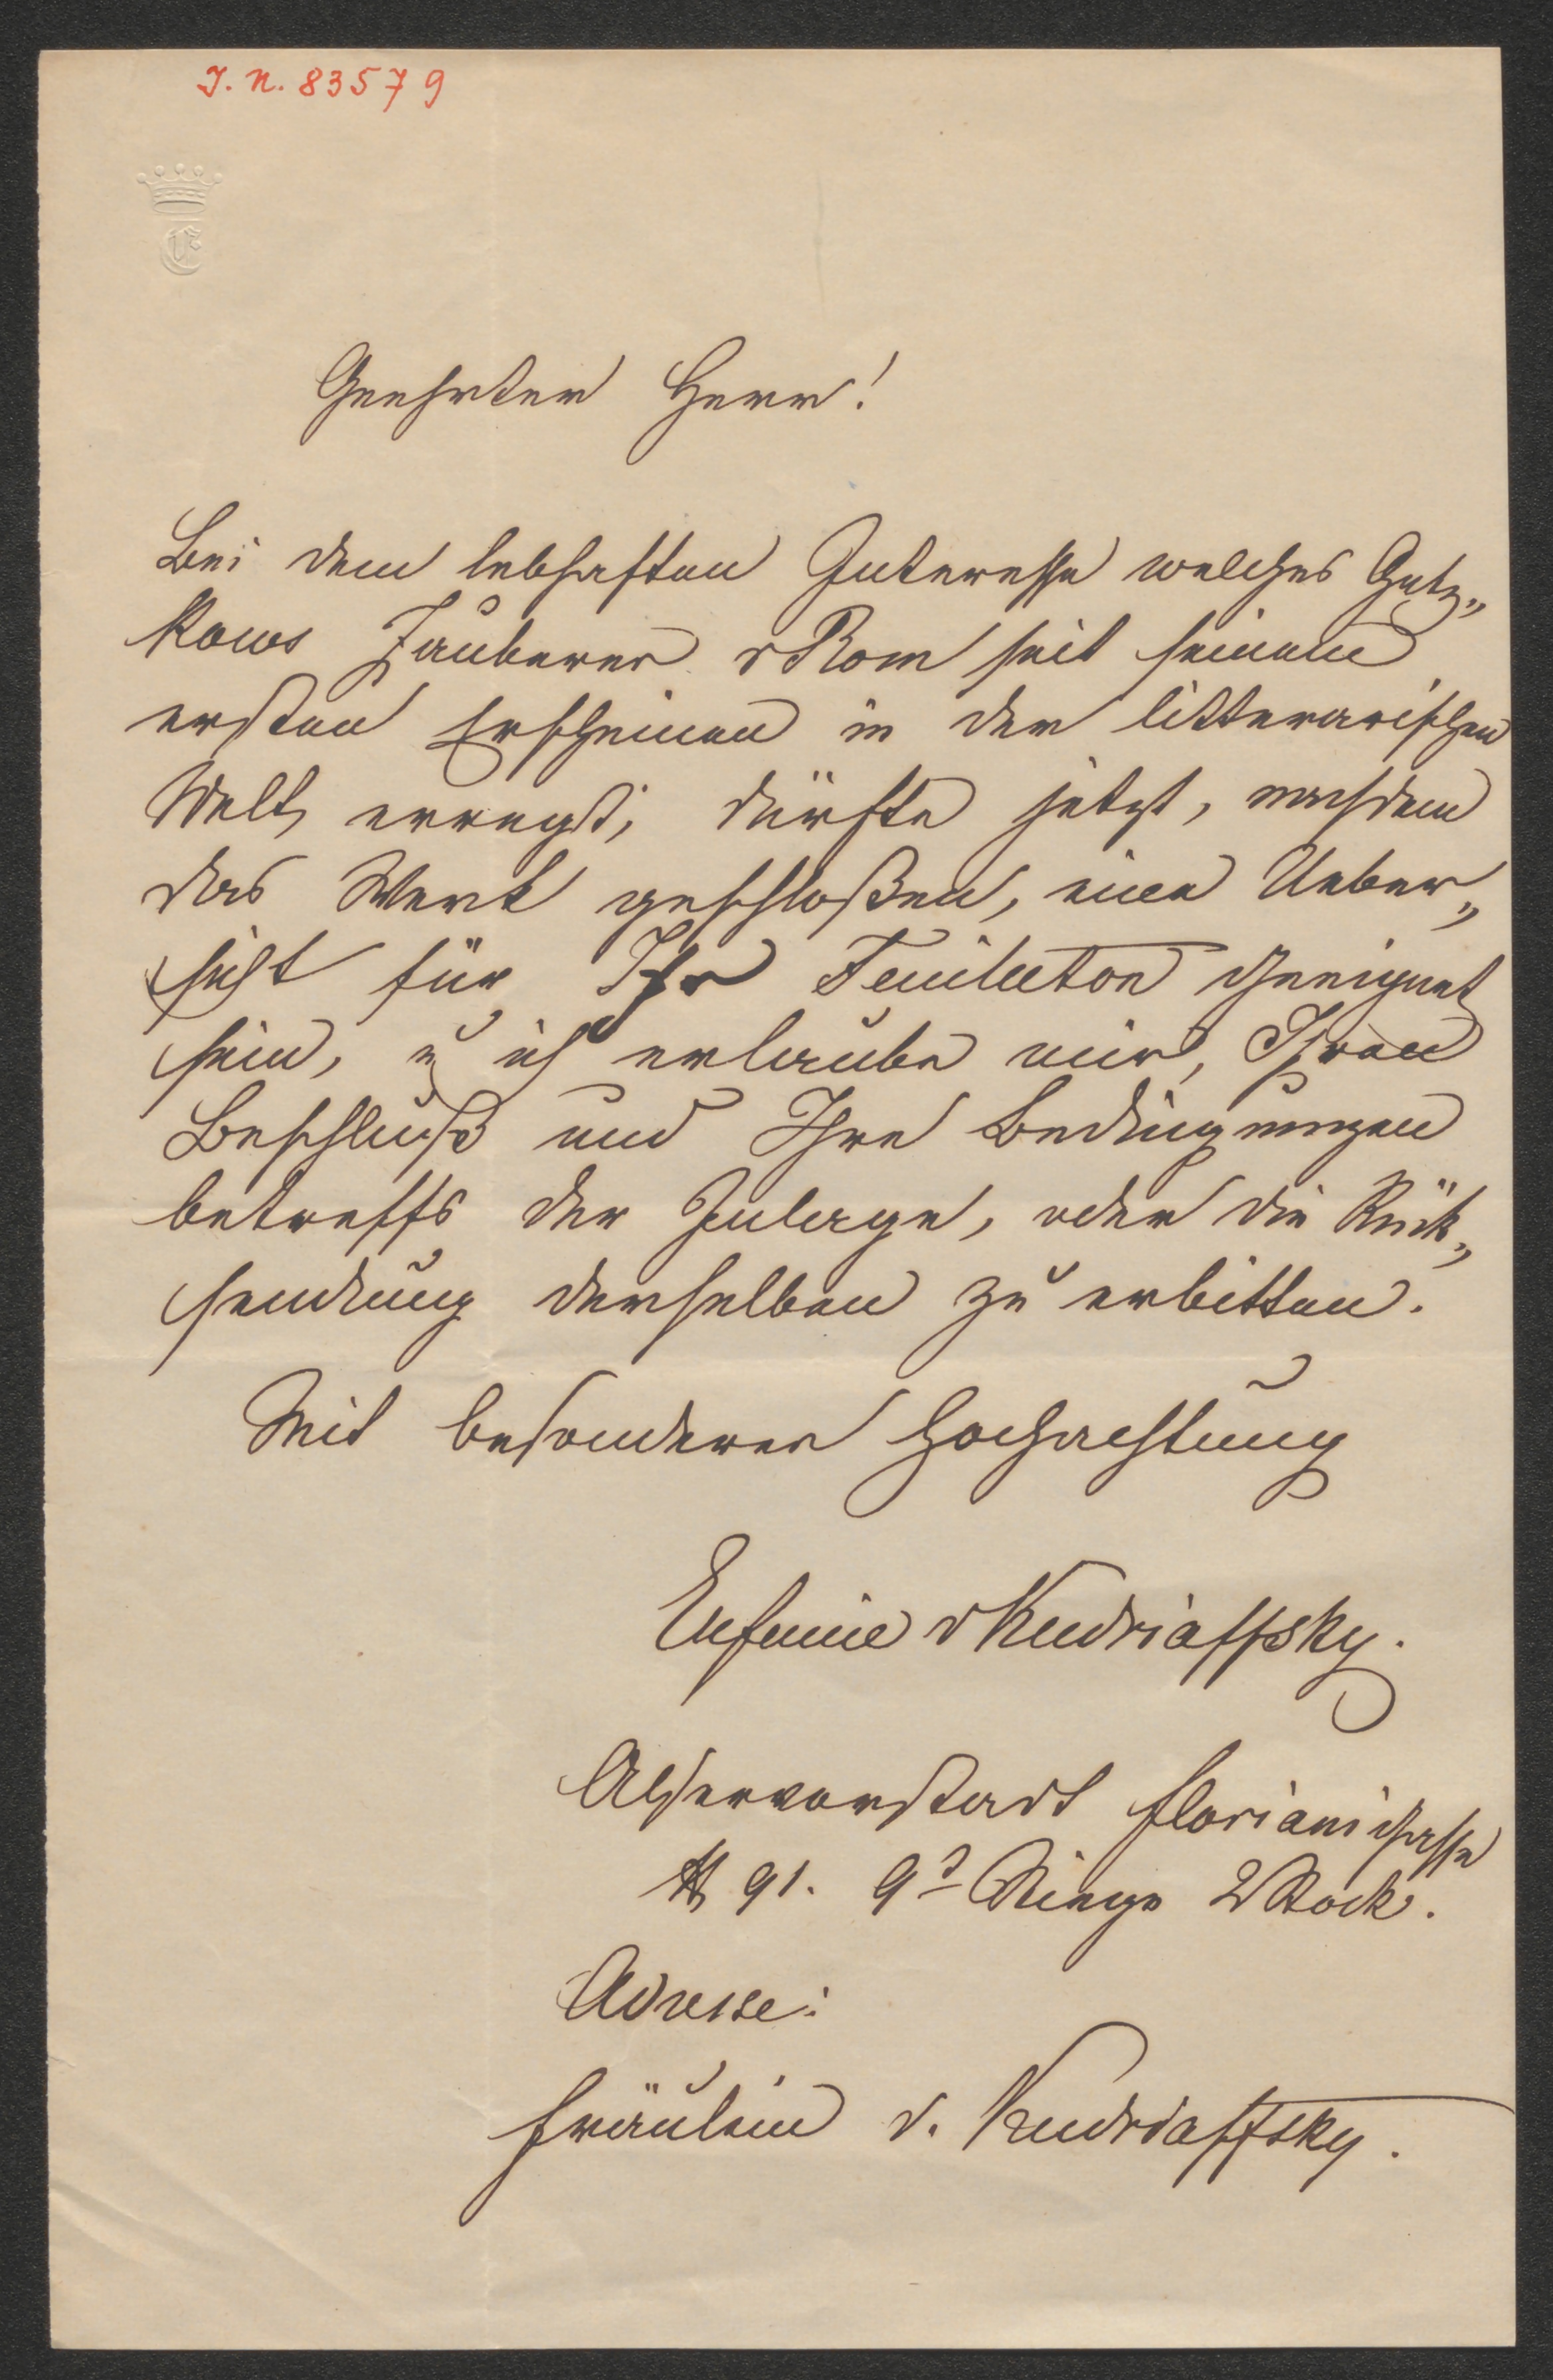 I. N. 83579
E
Geehrter Herr!
Bei dem lebhaften Interesse welches Gutz„
kows Zauberer v Rom seit seinem
ersten Erscheinen in der litterarischen
Welt erregt, dürfte jetzt, nachdem
das Werk geschloßen, eine Ueber„
sicht für Ihr Feuilleton geeignet
sein, u ich erlaube mir, Ihren
Beschluß und Ihre Bedingungen
betreffs der Inlage, oder die Rük„
sendung derselben zu erbitten.
Mit besonderer Hochachtung
Eufemie v Kudriaffsky.
Alservorstadt Florianigasse
N 91. 9t Stiege 2 Stock.
Adresse:
Fräulein v. Kudriaffsky.